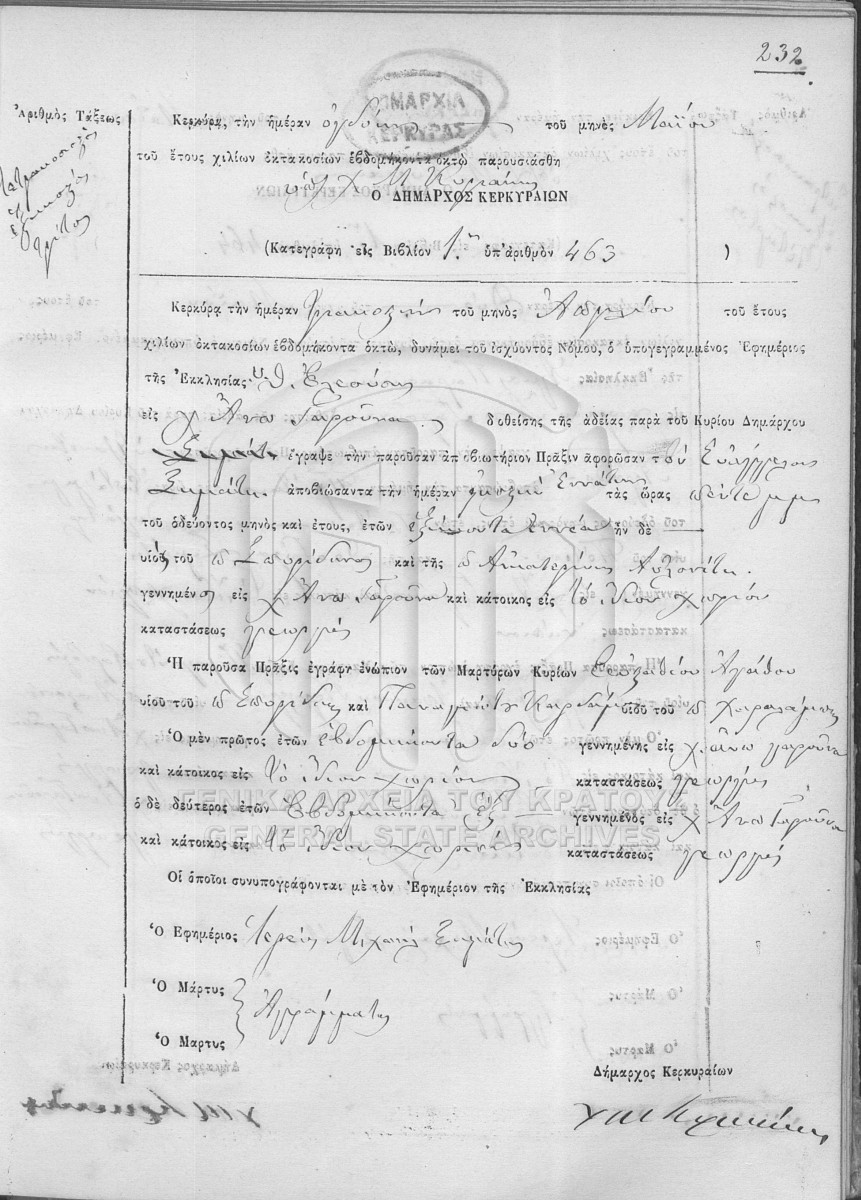 232
Ἀριθμὸς Τάξεως
τετρακοσιοστὸς
ἑξηκοστὸς
τρίτος
ΔΗΜΑΡΧΙΑ
ΚΕΡΚΥΡΑΣ
Κερκύρα, τὴν ἡμέραν ὀγδόην τοῦ μηνὸς Μαΐου
τοῦ ἔτους χιλίων ὀκτακοσίων ἑβδομήκοντα ὀκτὼ παρουσιάσθη
Ο ΔΗΜΑΡΧΟΣ ΚΕΡΚΥΡΑΙΩΝ
(Κατεγράφη εἰς Βιβλίον 1ον ὑπ' ἀριθμὸν 463 )
Κερκύρα τὴν ἡμέραν τριακοστὴν τοῦ μηνὸς Ἀπριλίου τοῦ ἔτους
χιλίων ὀκτακοσίων ἑβδομήκοντα ὀκτὼ, δυνάμει τοῦ ἰσχύοντος Νόμου, ὁ ὑπογεγραμμένος Ἐφημέριος
τῆς Ἐκκλησίας Ὑ. Θ. Ἐλεούσης
εἰς χ Ἄνω Γαρούνα δοθείσης τῆς ἀδείας παρὰ τοῦ Κυρίου Δημάρχου
ἔγραψε τὴν παροῦσαν ἀποβιωτήριον Πρᾶξιν ἀφορῶσαν τοῦ Εὐάγγελος
ἀποβιώσαντα τὴν ἡμέραν εἰκοστὴ ἐννάτης τὰς ὥρας πέντε μμ
τοῦ ὁδεύοντος μηνὸς καὶ ἔτους, ἐτῶν ἑξήκοντα ἐννέα ἦν δὲ
υἱὸς τοῦ π Σπυρίδωνος καὶ τῆς π Αἰκατερίνης Αὐλωνίτη
γεννημένος εἰς χ Ἄνω Γαρούνα καὶ κάτοικος εἰς τὸ ἴδιον χωρίον
καταστάσεως γεωργὸς
Ἡ παροῦσα Πρᾶξις ἐγράφη ἐνώπιον τῶν Μαρτύρων Κυρίων
υἱοῦ τοῦ π Σπυρίδων καὶ Παναγιώτη υἱοῦ τοῦ π Χαραλάμπη
Ὁ μὲν πρῶτος ἐτῶν ἑβδομήκοντα δύο γεννημένης εἰς χ. ἄνω γαρούνα
καὶ κάτοικος εἰς τὸ ἴδιον χωρίον καταστάσεως γεωργὸς
ὁ δὲ δεύτερος ἐτῶν ἑβδομήκοντα ἓξ γεννημένος εἰς χ Ἄνω Γαρούνα
καὶ κάτοικος εἰς τὸ ἴδιον χωρίον καταστάσεως γεωργὸς
Οἱ ὁποῖοι συνυπογράφονται μὲ τὸν Ἐφημέριον τῆς Ἐκκλησίας
Ὁ Ἐφημέριος Ἱερεὺς Μιχαὴλ
Ὁ Μάρτυς
Ἀγράμματοι
Ὁ Μαρτυς
Δήμαρχος Κερκυραίων
ΓΕΝΙΚΑ ΑΡΧΕΙΑ ΤΟΥ ΚΡΑΤΟΥΣ
GENERAL STATE ARCHIVES